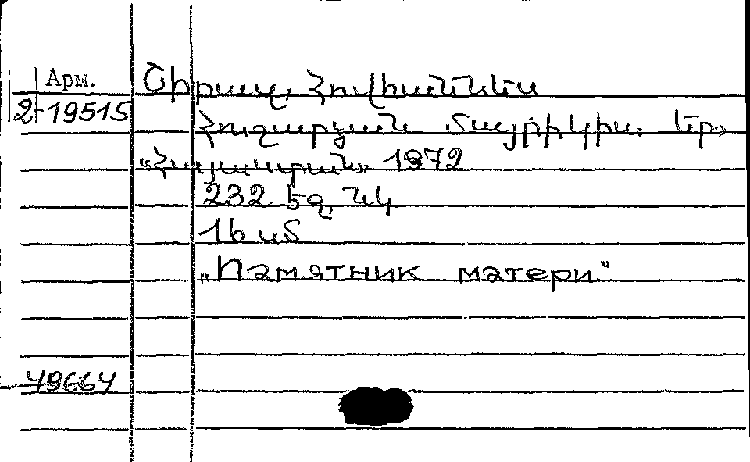 Арм.
2-19515
Շիրազ, Հովհաննես
Հուշարձան մայրիկիս. Եր.,
«Հայաստան» 1972
232 էջ, նկ
16 սմ
„Памятник матери"
49664